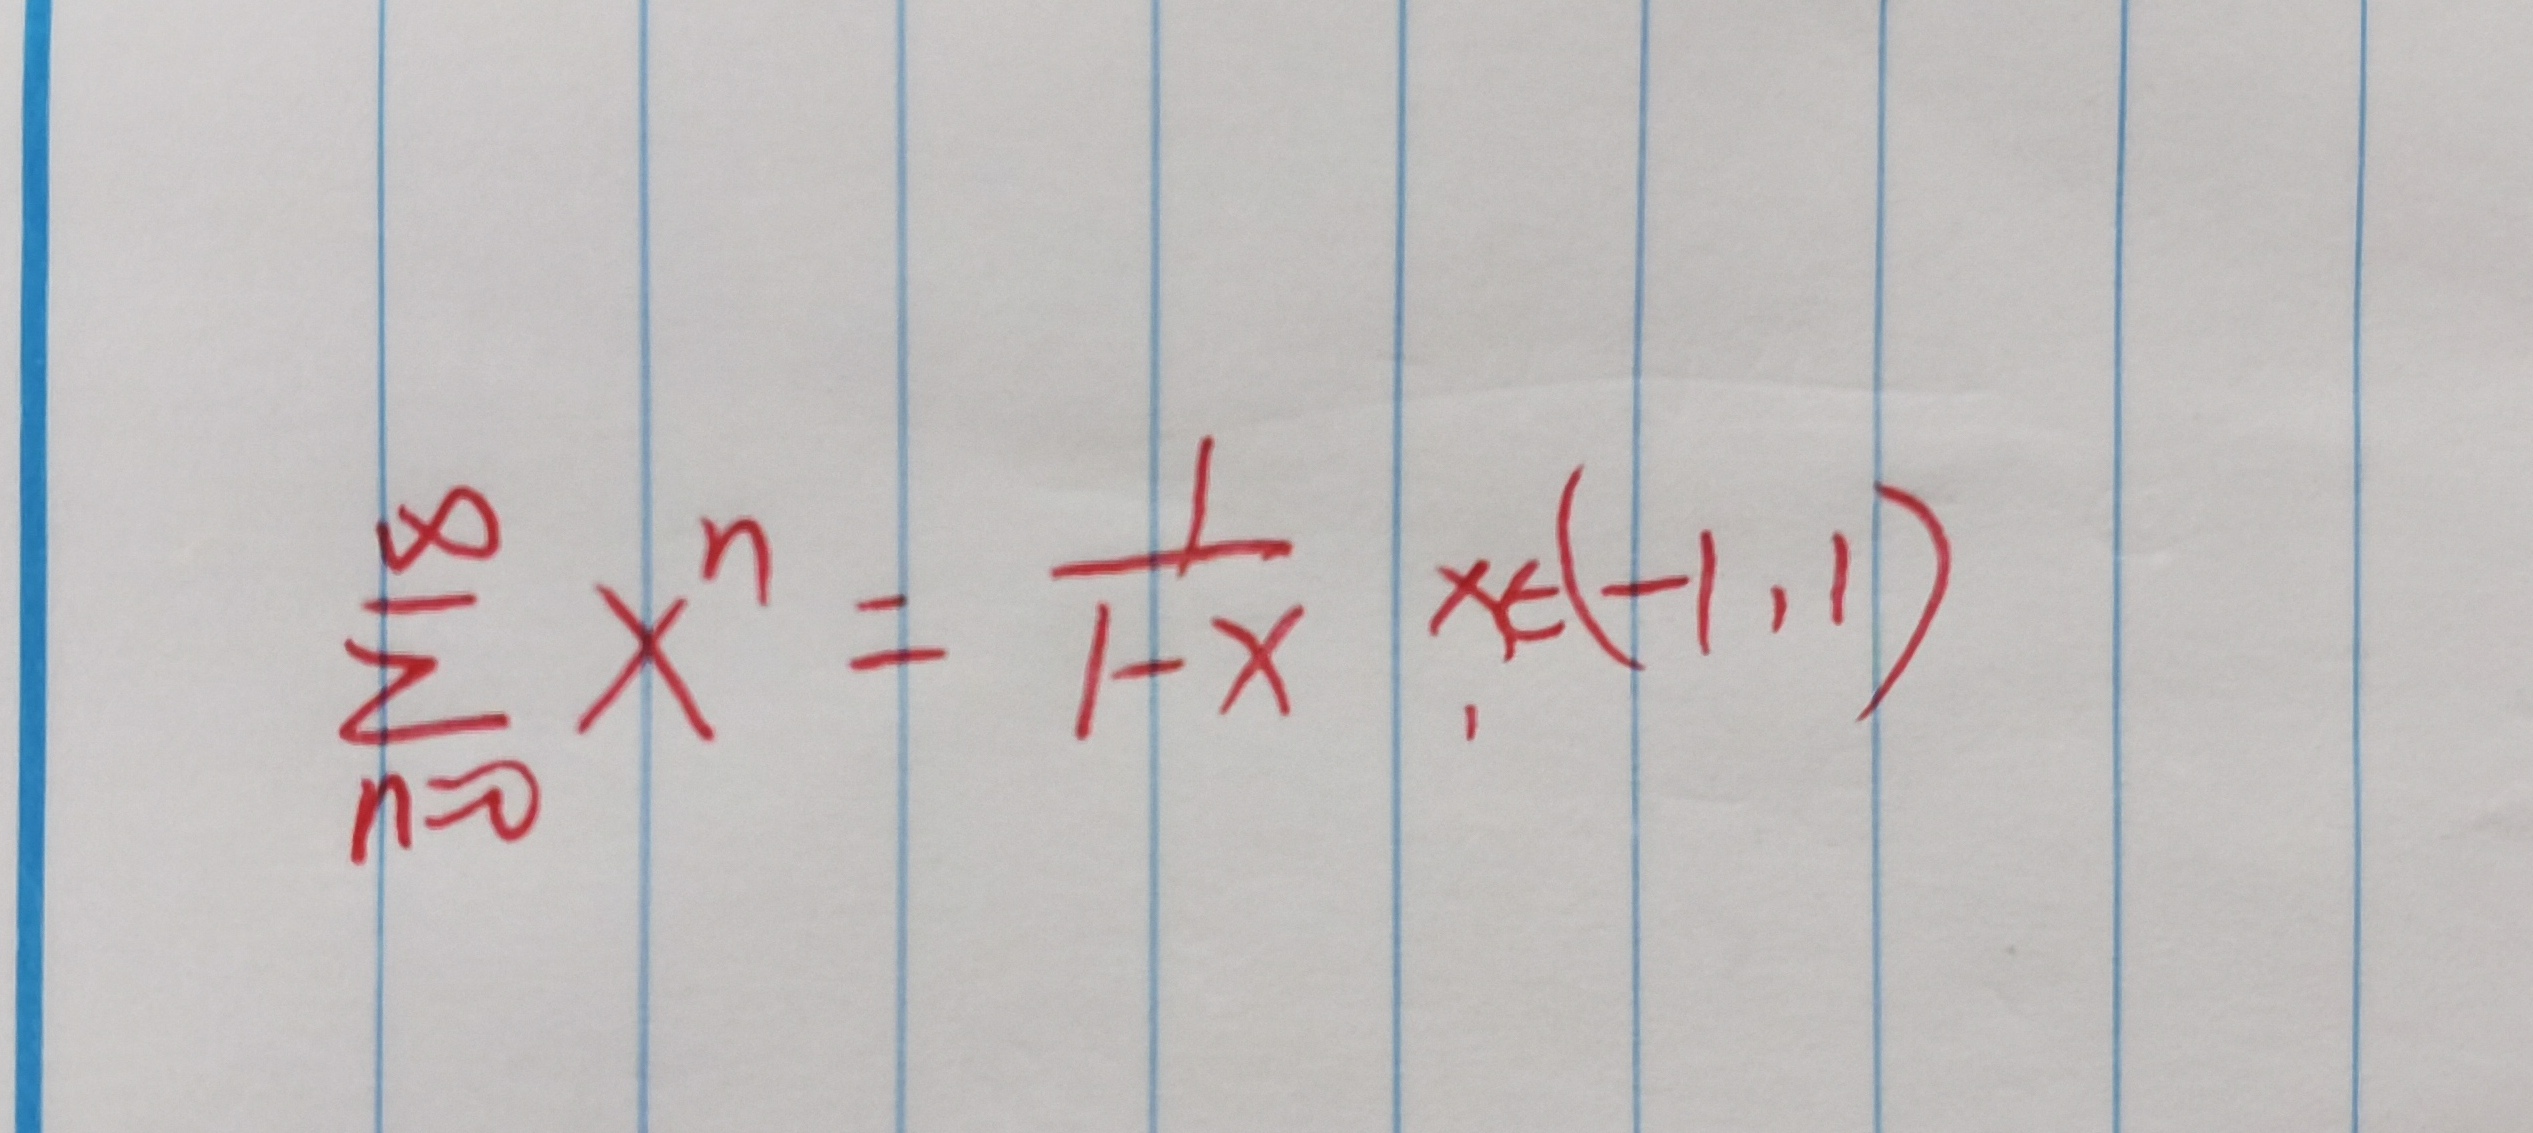 $\sum_{n=0}^{\infty} x^n = \frac{1}{1-x}, x \in (-1, 1)$